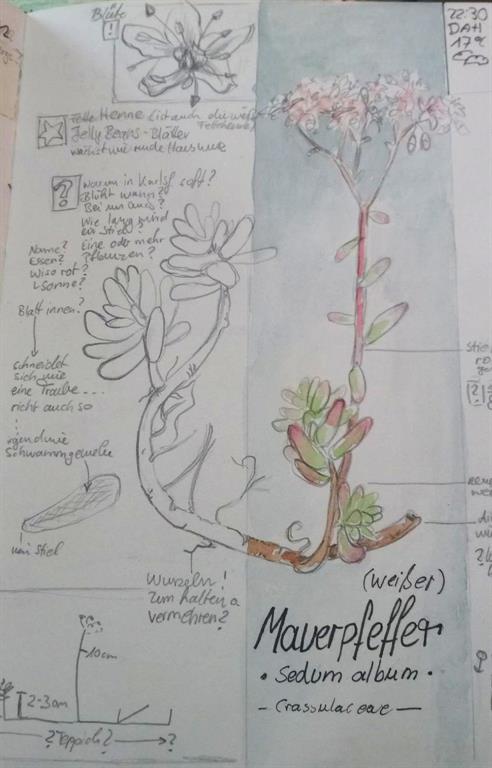 Blüte
!
22:30
DAH
17°C
Fette Henne (ist auch die
Jelly Beans-Blätter
wächst wie
?
warum in Karlsf. oft?
Blüht wann?
Bei uns auch?
Wie lang wird
ein Stiel?
Eine oder mehr
Pflanzen?
Name?
Essen?
Wiso rot?
Sonne?
Blatt innen?
schneidet
sich wie
eine Traube....
nicht auch so
irgendwie
Schwammgewebe
Stiel
Wurzeln!
zum halten o
vermehren?
10cm
2-3cm
? Teppich? ?
(weißer)
Mauerpfeffer
• Sedum album •
- Crassulaceae -